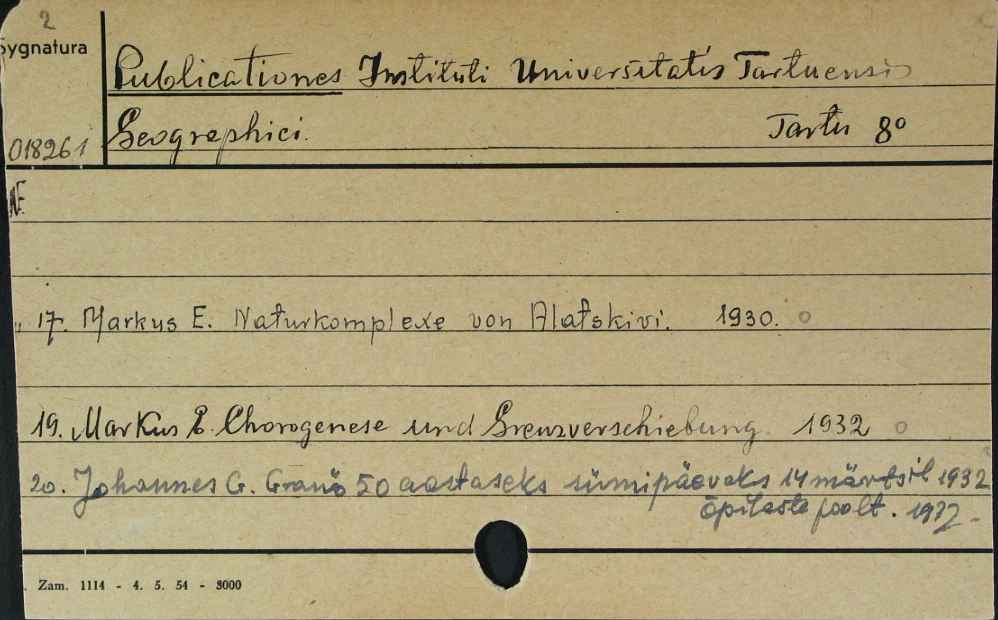 2
Sygnatura
Publicationes Instituti Universitatis Tartuensis
Geographici. Tartu 8°
018261
17. Markus E. Naturkomplexe von Alatskivi. 1930.
19. Markus E. Chorogenese und Grenzverschiebung. 1932
20. Johannes G. Granö 50 aastaseks sünnipäevaks 14 märtsil 1932
õpilaste poolt. 1932.
Zam. 1114 - 4. 5. 54 - 3000